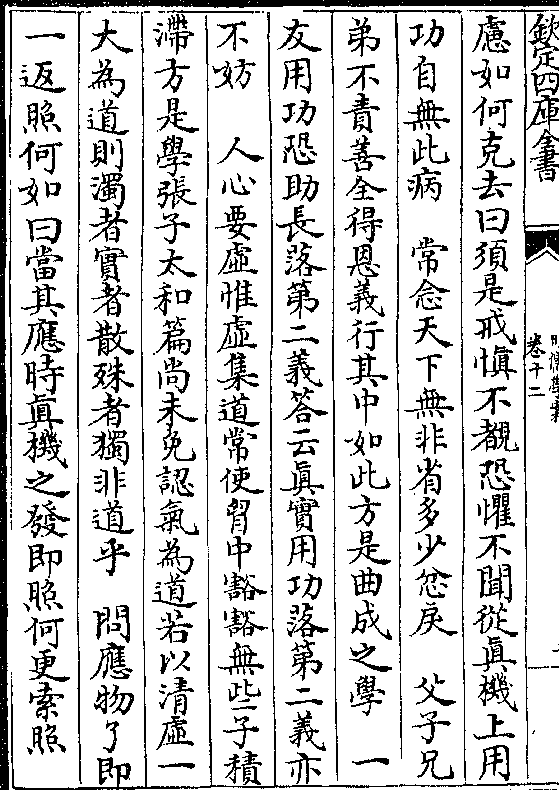 欽定四庫全書
卷十二
慮如何克去曰須是戒慎不覩恐懼不聞從真機上用
功自無此病　常念天下無非省多少忿戾　父子兄
弟不責善全得恩義行其中如此方是曲成之學　一
友用功恐助長落第二義答云真實用功落第二義亦
不妨　人心要虛惟虛集道常使胷中豁豁無些子積
滯方是學張子太和篇尚未免認氣為道若以清虛一
大為道則濁者實者散殊者獨非道乎　問應物了即
一返照何如曰當其應時真機之發即照何更索照